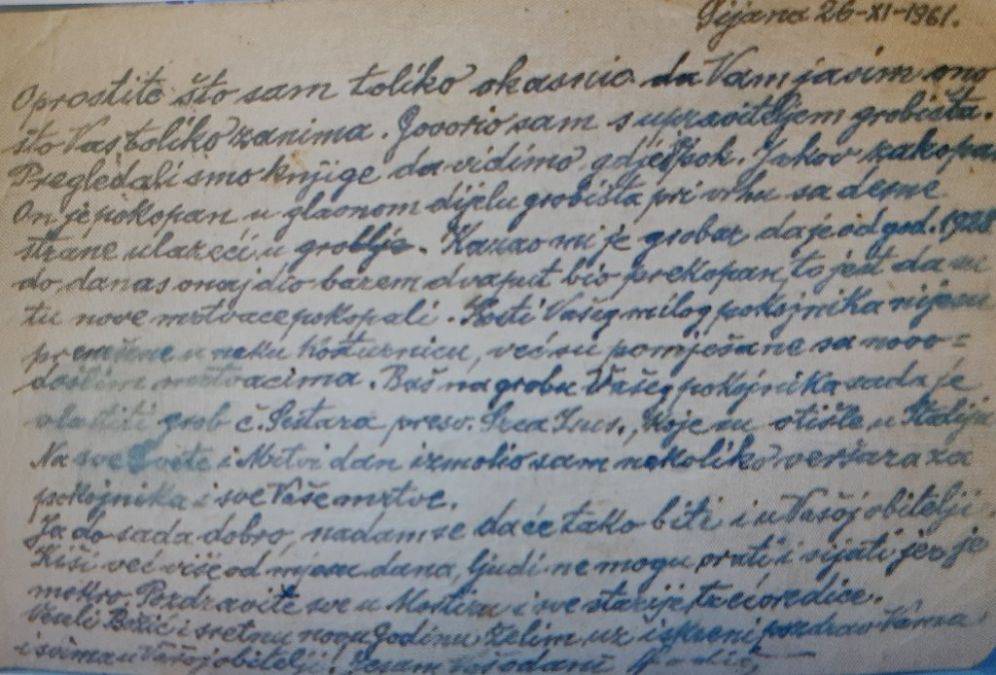 26-XI-1961.
Oprostite što sam toliko okasnio da Vam jasim ono
što Vas toliko zanima. Govorio sam s upraviteljem grobišta.
Pregledali smo knjige da vidimo gdje je pok. Jakov zakopan
On je pokopan u glavnom dijelu grobišta pri vrhu sa desne
strane ulazeći u groblje. Kazao mi je grobar da je od god. 1928
do danas onaj dio barem dvaput bio prekopan, to jest da su
tu nove mrtvace pokopali. Kosti Vašeg milog pokojnika nijesu
premeštene u neku kosturnicu, već su pomješane sa novo=
došlim mrtvacima. Baš na grobu Vašeg pokojnika sada je
vlastiti grob č. Sestara presv. Srca Isus., koje su otišle u Italiju
Na sve Svete i Mrtvi dan izmolio sam nekoliko za
pokojnika i sve Vaše mrtve.
Ja do sada dobro, nadam se da će tako biti i u Vašoj obitelji.
Kiši već više od mjesec dana, ljudi ne mogu orati i sijati jer je
mokro. Pozdravite sve u i sve starije
Veseli Božić i sretnu novu Godinu želim uz iskreni pozdrav Vama
i svima u Vašoj obitelji. Jesam Vaš odani